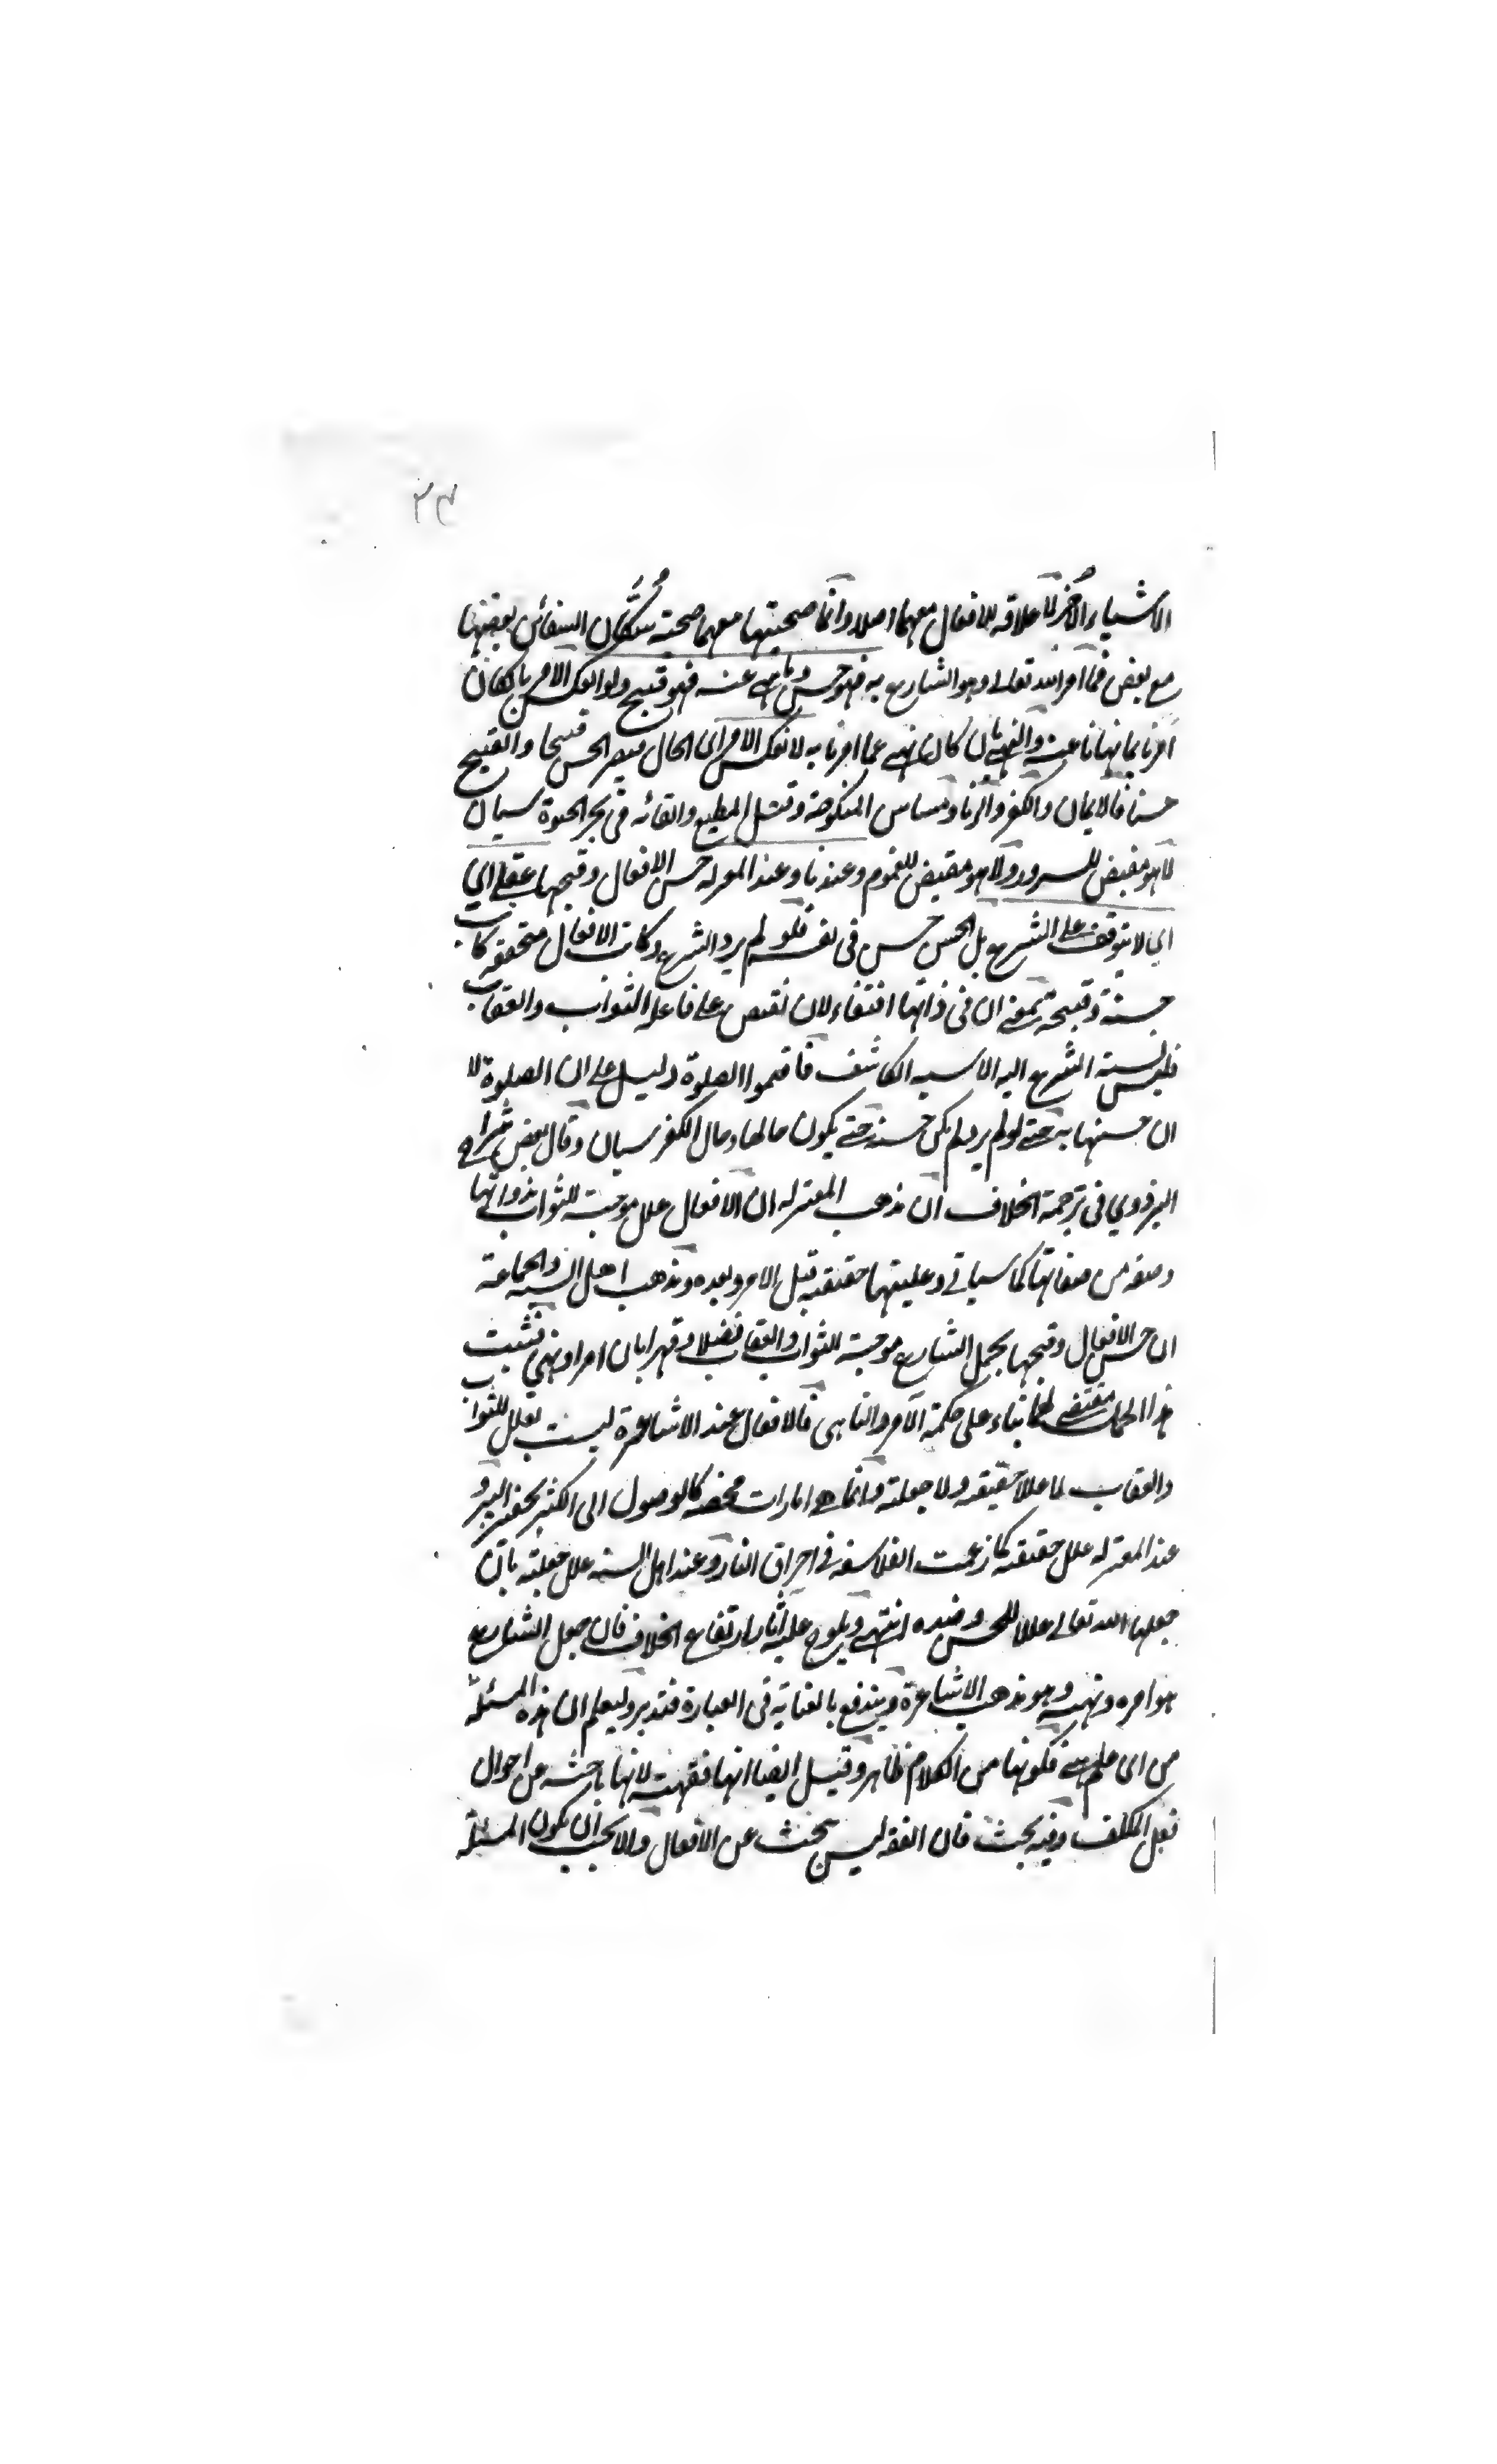 ٢٣
الاشياء الاخر لا علاقة للافعال معهما اصلا وانما صحبتها معهما صحبة سُكّان السفائن بعضها
مع بعض فما امر الله تعالى وهو الشارع به فهو حسن وما نهى عنه فهو قبيح ولو انعكس الامر بان كان
امرنا بما نهانا عنه والنهي بان كان نهى عما امرنا به لانعكس الامر اى الحال فيصير الحسن قبيحا والقبيح
حسنا فالايمان والكفر والزنا ومساس المنكوحة وقتل المطيع والقائه في بحر الحيوة سيان
لا هو مفيض للسرور ولا هو مفيض للغموم وعندنا وعند المعتزلة حسن الافعال وقبحها عقلي اي
اي لا يتوقف على الشرع بل الحسن حسن في نفسه فلو لم يرد الشرع وكانت الافعال متحققة كانت
حسنة وقبيحة بمعنى ان في ذاتها اقتضاء لان تفيض على فاعله الثواب والعقاب
فليس نسبة الشرع اليه الا نسبة الكاشف فاقيموا الصلوة دليل على ان الصلوة لا
ان حسنها به حتى لو لم يرد لم يكن حسنة حتى يكون حالها وحال الكفر سيان وقال بعض شراح
البزدوي في ترجمة الخلاف ان مذهب المعتزلة ان الافعال علل موجبة للثواب بذواتها
وصفة من صفاتها كما سياتي وعليتها حقيقية قبل الامر وبعده ومذهب اهل السنة والجماعة
ان حسن الافعال وقبحها بجعل الشارع موجبة للثواب والعقاب فضلا وقهرا بان امر او نهي فثبت
هذا الجعل مقتضى لهما بناء على حكمة الآمر والناهي فالافعال عند الاشاعرة ليست بعلل للثواب
والعقاب لا عللا حقيقة ولا جعلية وانما هي امارات محضة كالوصول الى الكثير بحفر البير و
عند المعتزلة علل حقيقة كما زعمت الفلاسفة في احراق النار وعند اهل السنة علل جعلية بان
جعلها الله تعالى عللا للحسن وضده انتهى ويلوح عليه آثار ارتفاع الخلاف فان جعل الشارع
هو امره ونهيه وهو مذهب الاشاعرة ويندفع بالعناية في العبارة فتدبر وليعلم ان هذه المسئلة
من اى علم هى فكونها من الكلام ظاهر وقيل ايضا انها فقهية لانها باحثة عن احوال
فعل المكلف وفيه بحث فان الفقه ليس يبحث عن الافعال والا يجب ان يكون المسئلة